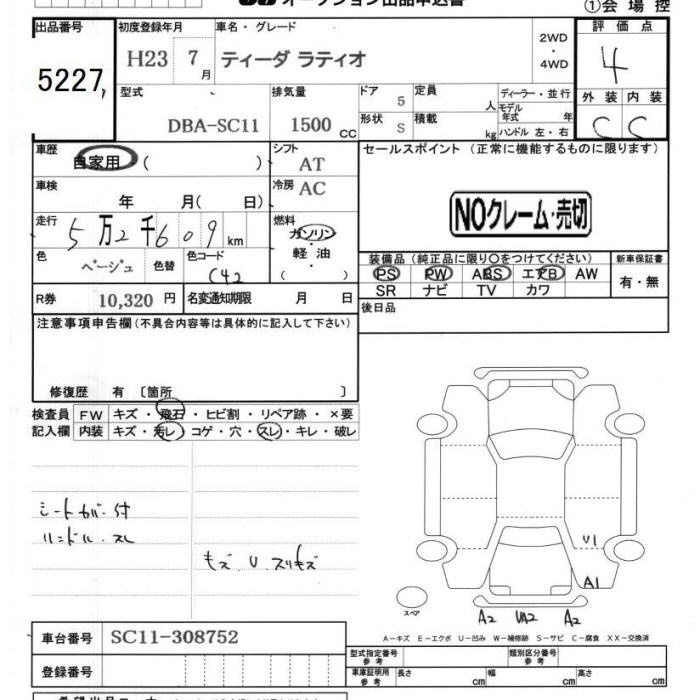 オークション出品申込書
①会場控
出品番号 初度登録年月 車名・グレード 2WD・4WD 評価点
5227, H23 7月 ティーダ ラティオ 4
型式 排気量 ドア 定員 人 ディーラー・並行 外装 内装
DBA-SC11 1500 CC 5 モデル年式 年式 C C
形状 S 積載 kg ハンドル 左・右
車歴 自家用 ( ) シフト AT セールスポイント (正常に機能するものに限ります)
車検 年 月( 日) 冷房 AC
NOクレーム・売切
走行 5万2千609km 燃料 ガソリン・軽油 ( )
色 ベージュ 色替 色コード C42
装備品 (純正品に限り○をつけてください) 新車保証書
PS PW ABS エアB AW 有・無
SR ナビ TV カワ
R券 10,320円 名変通知期限 月 日 後日品
注意事項申告欄 (不具合内容等は具体的に記入して下さい)
修復歴 有 〔箇所 〕
検査員 FW キズ・飛石・ヒビ割・リペア跡・×要
記入欄 内装 キズ・汚レ・コゲ・穴・スレ・キレ・破レ
シートカバー付
ハンドル・スレ
キズ・U・スリキズ
U1
A1
スペア
A2 UA2 A2
A-キズ E-エクボ U-凹み W-補修跡 S-サビ C-腐食 XX-交換済
車台番号 SC11-308752
型式指定番号 参考 類別区分番号 参考
登録番号
車庫証明用 参考 長さ cm 幅 cm 高さ cm